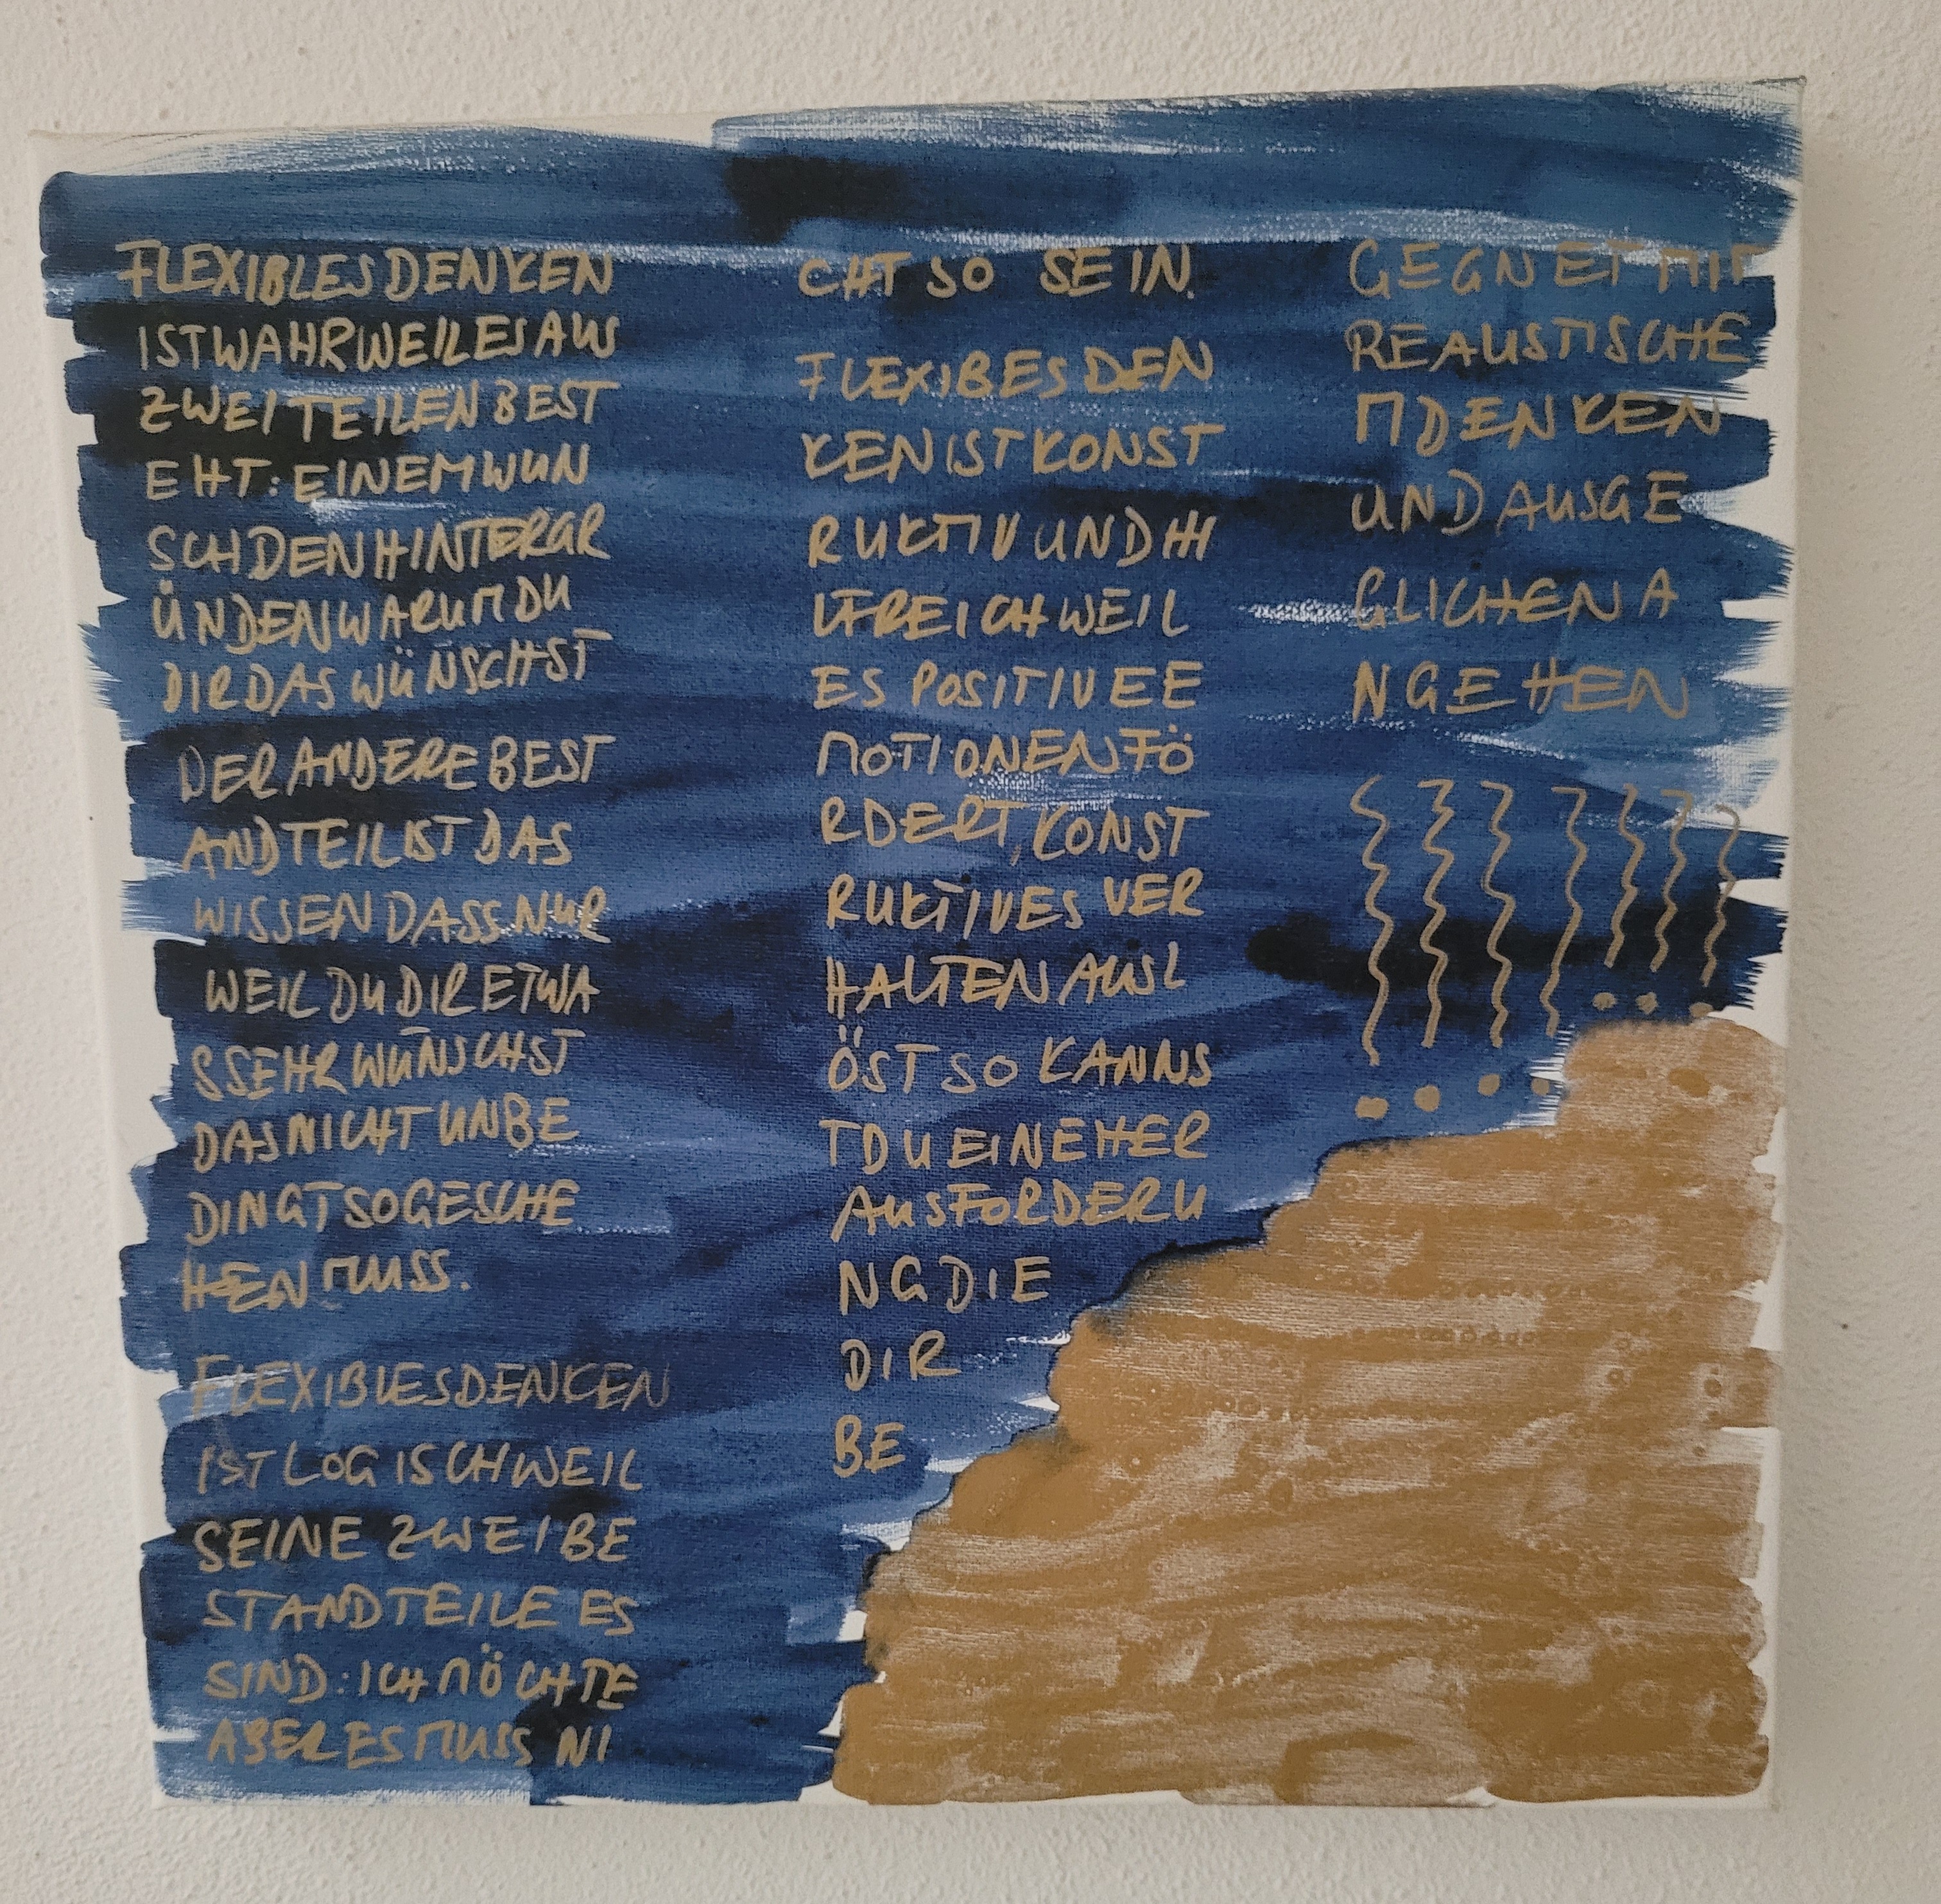 FLEXIBLESDENKEN
ISTWAHRWEILESAUS
ZWEITEILENBEST
EHT:EINEMWUN
SCHDENHINTERGR
ÜNDENWARUMDU
DIRDASWÜNSCHST
DERANDEREBEST
ANDTEILISTDAS
WISSENDASSNUR
WEILDUDIRETWA
SSEHRWÜNSCHST
DASNICHTUNBE
DINGTSOGESCHE
HENMUSS.
FLEXIBLESDENKEN
ISTLOGISCHWEIL
SEINE ZWEIBE
STANDTEILE ES
SIND:ICHMÖCHTE
ABERESMUSS NI
CHT SO SEIN.
FLEXIBES DEN
KENISTKONST
RUKTIVUNDHI
LFREICHWEIL
ES POSITIVEE
MOTIONENFÖ
RDERT,KONST
RUKTIVES VER
HALTENAUSL
ÖST SO KANNS
TDUEINEHER
AUSFORDERU
NGDIE
DIR
BE
GEGNETMIT
REALISTISCHE
MDENKEN
UNDAUSGE
GLICHENA
NGEHEN